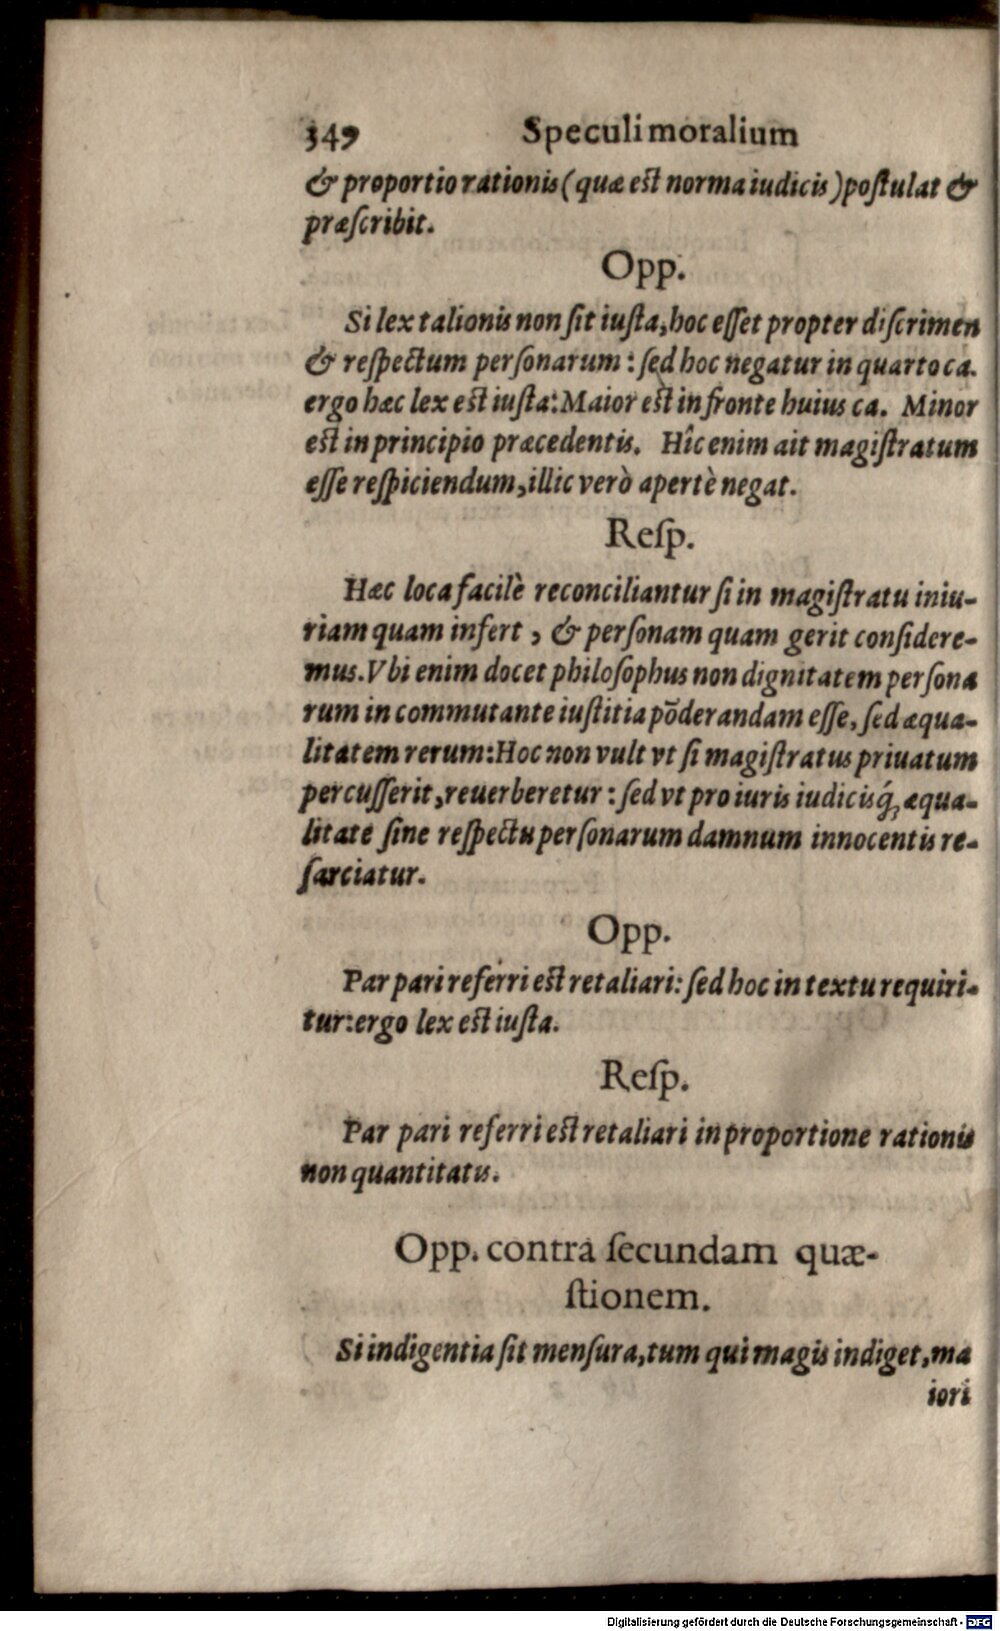 349 Speculi moralium
& proportio rationis (quæ est norma iudicis) postulat &
præscribit.
Opp.
Si lex talionis non sit iusta, hoc esset propter discrimen
& respectum personarum : sed hoc negatur in quarto ca.
ergo hæc lex est iusta: Maior est in fronte huius ca. Minor
est in principio præcedentis. Hîc enim ait magistratum
esse respiciendum, illic verò apertè negat.
Resp.
Hæc loca facilè reconciliantur si in magistratu iniu-
riam quam infert , & personam quam gerit considere-
mus. Vbi enim docet philosophus non dignitatem persona
rum in commutante iustitia põderandam esse, sed æqua-
litatem rerum: Hoc non vult vt si magistratus priuatum
percusserit, reuerberetur : sed vt pro iuris iudicisq́; æqua-
litate sine respectu personarum damnum innocentis re-
sarciatur.
Opp.
Par pari referri est retaliari: sed hoc in textu requiri-
tur: ergo lex est iusta.
Resp.
Par pari referri est retaliari in proportione rationis
non quantitatis.
Opp. contra secundam quæ-
stionem.
Si indigentia sit mensura, tum qui magis indiget, ma
iori
Digitalisierung gefördert durch die Deutsche Forschungsgemeinschaft - DFG